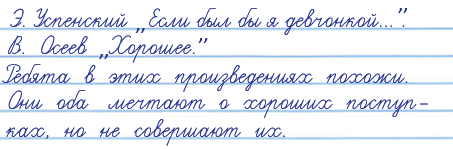 Э. Успенский „Если был бы я девчонкой...”.
В. Осеев „Хорошее.”
Ребята в этих произведениях похожи.
Они оба мечтают о хороших поступ-
ках, но не совершают их.